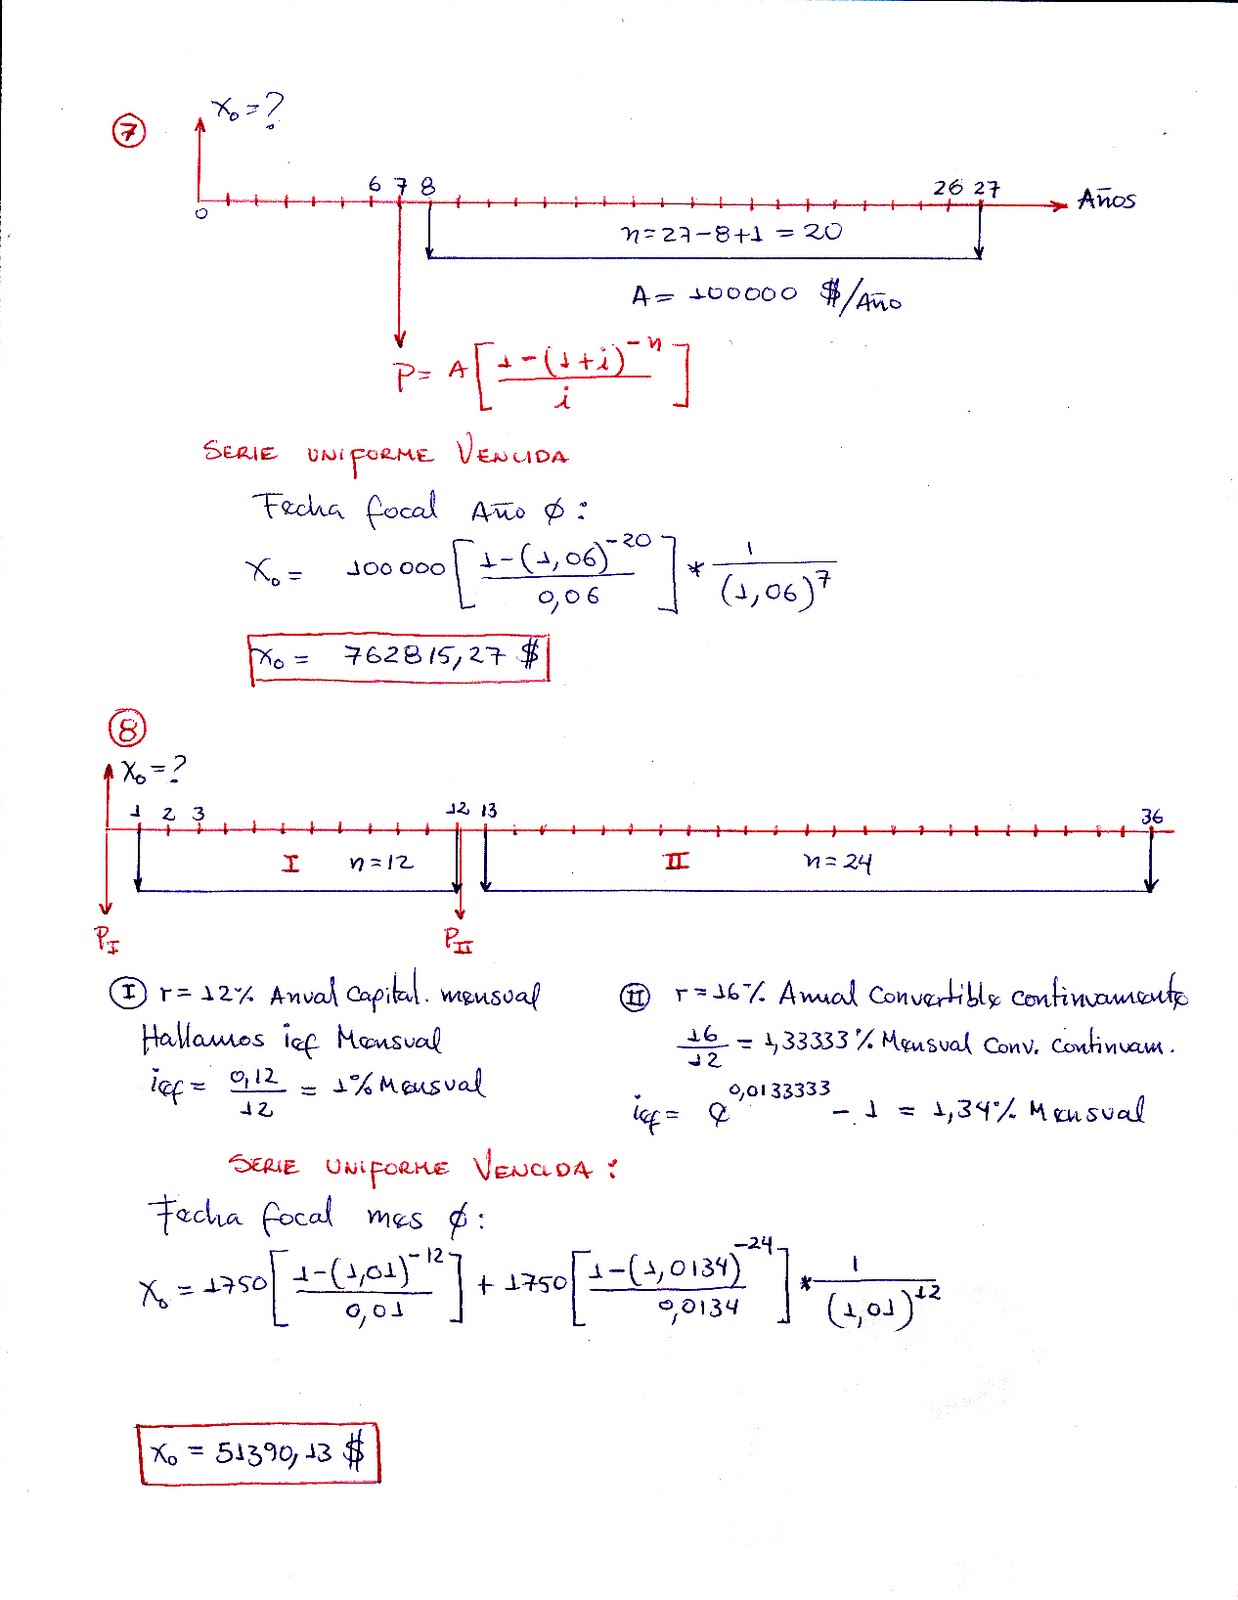 7
X₀ = ?
6 7 8 26 27
0 Años
n = 27 - 8 + 1 = 20
A = 100000 $/Año
P = A [ (1 - (1 + i)^-n) / i ]
SERIE UNIFORME VENCIDA
Fecha focal Año ∅:
X₀ = 100000 [ (1 - (1,06)^-20) / 0,06 ] * 1 / (1,06)^7
X₀ = 762815,27 $
8
X₀ = ?
1 2 3 12 13 36
I n = 12 II n = 24
P_I P_II
I r = 12% Anual Capital. mensual
Hallamos ief Mensual
ief = 0,12 / 12 = 1% Mensual
II r = 16% Anual Convertible continuamente
16 / 12 = 1,33333% Mensual Conv. Continuam.
ief = e^0,0133333 - 1 = 1,34% Mensual
SERIE UNIFORME VENCIDA:
Fecha focal mes ∅:
X₀ = 1750 [ (1 - (1,01)^-12) / 0,01 ] + 1750 [ (1 - (1,0134)^-24) / 0,0134 ] * 1 / (1,01)^12
X₀ = 51390,13 $